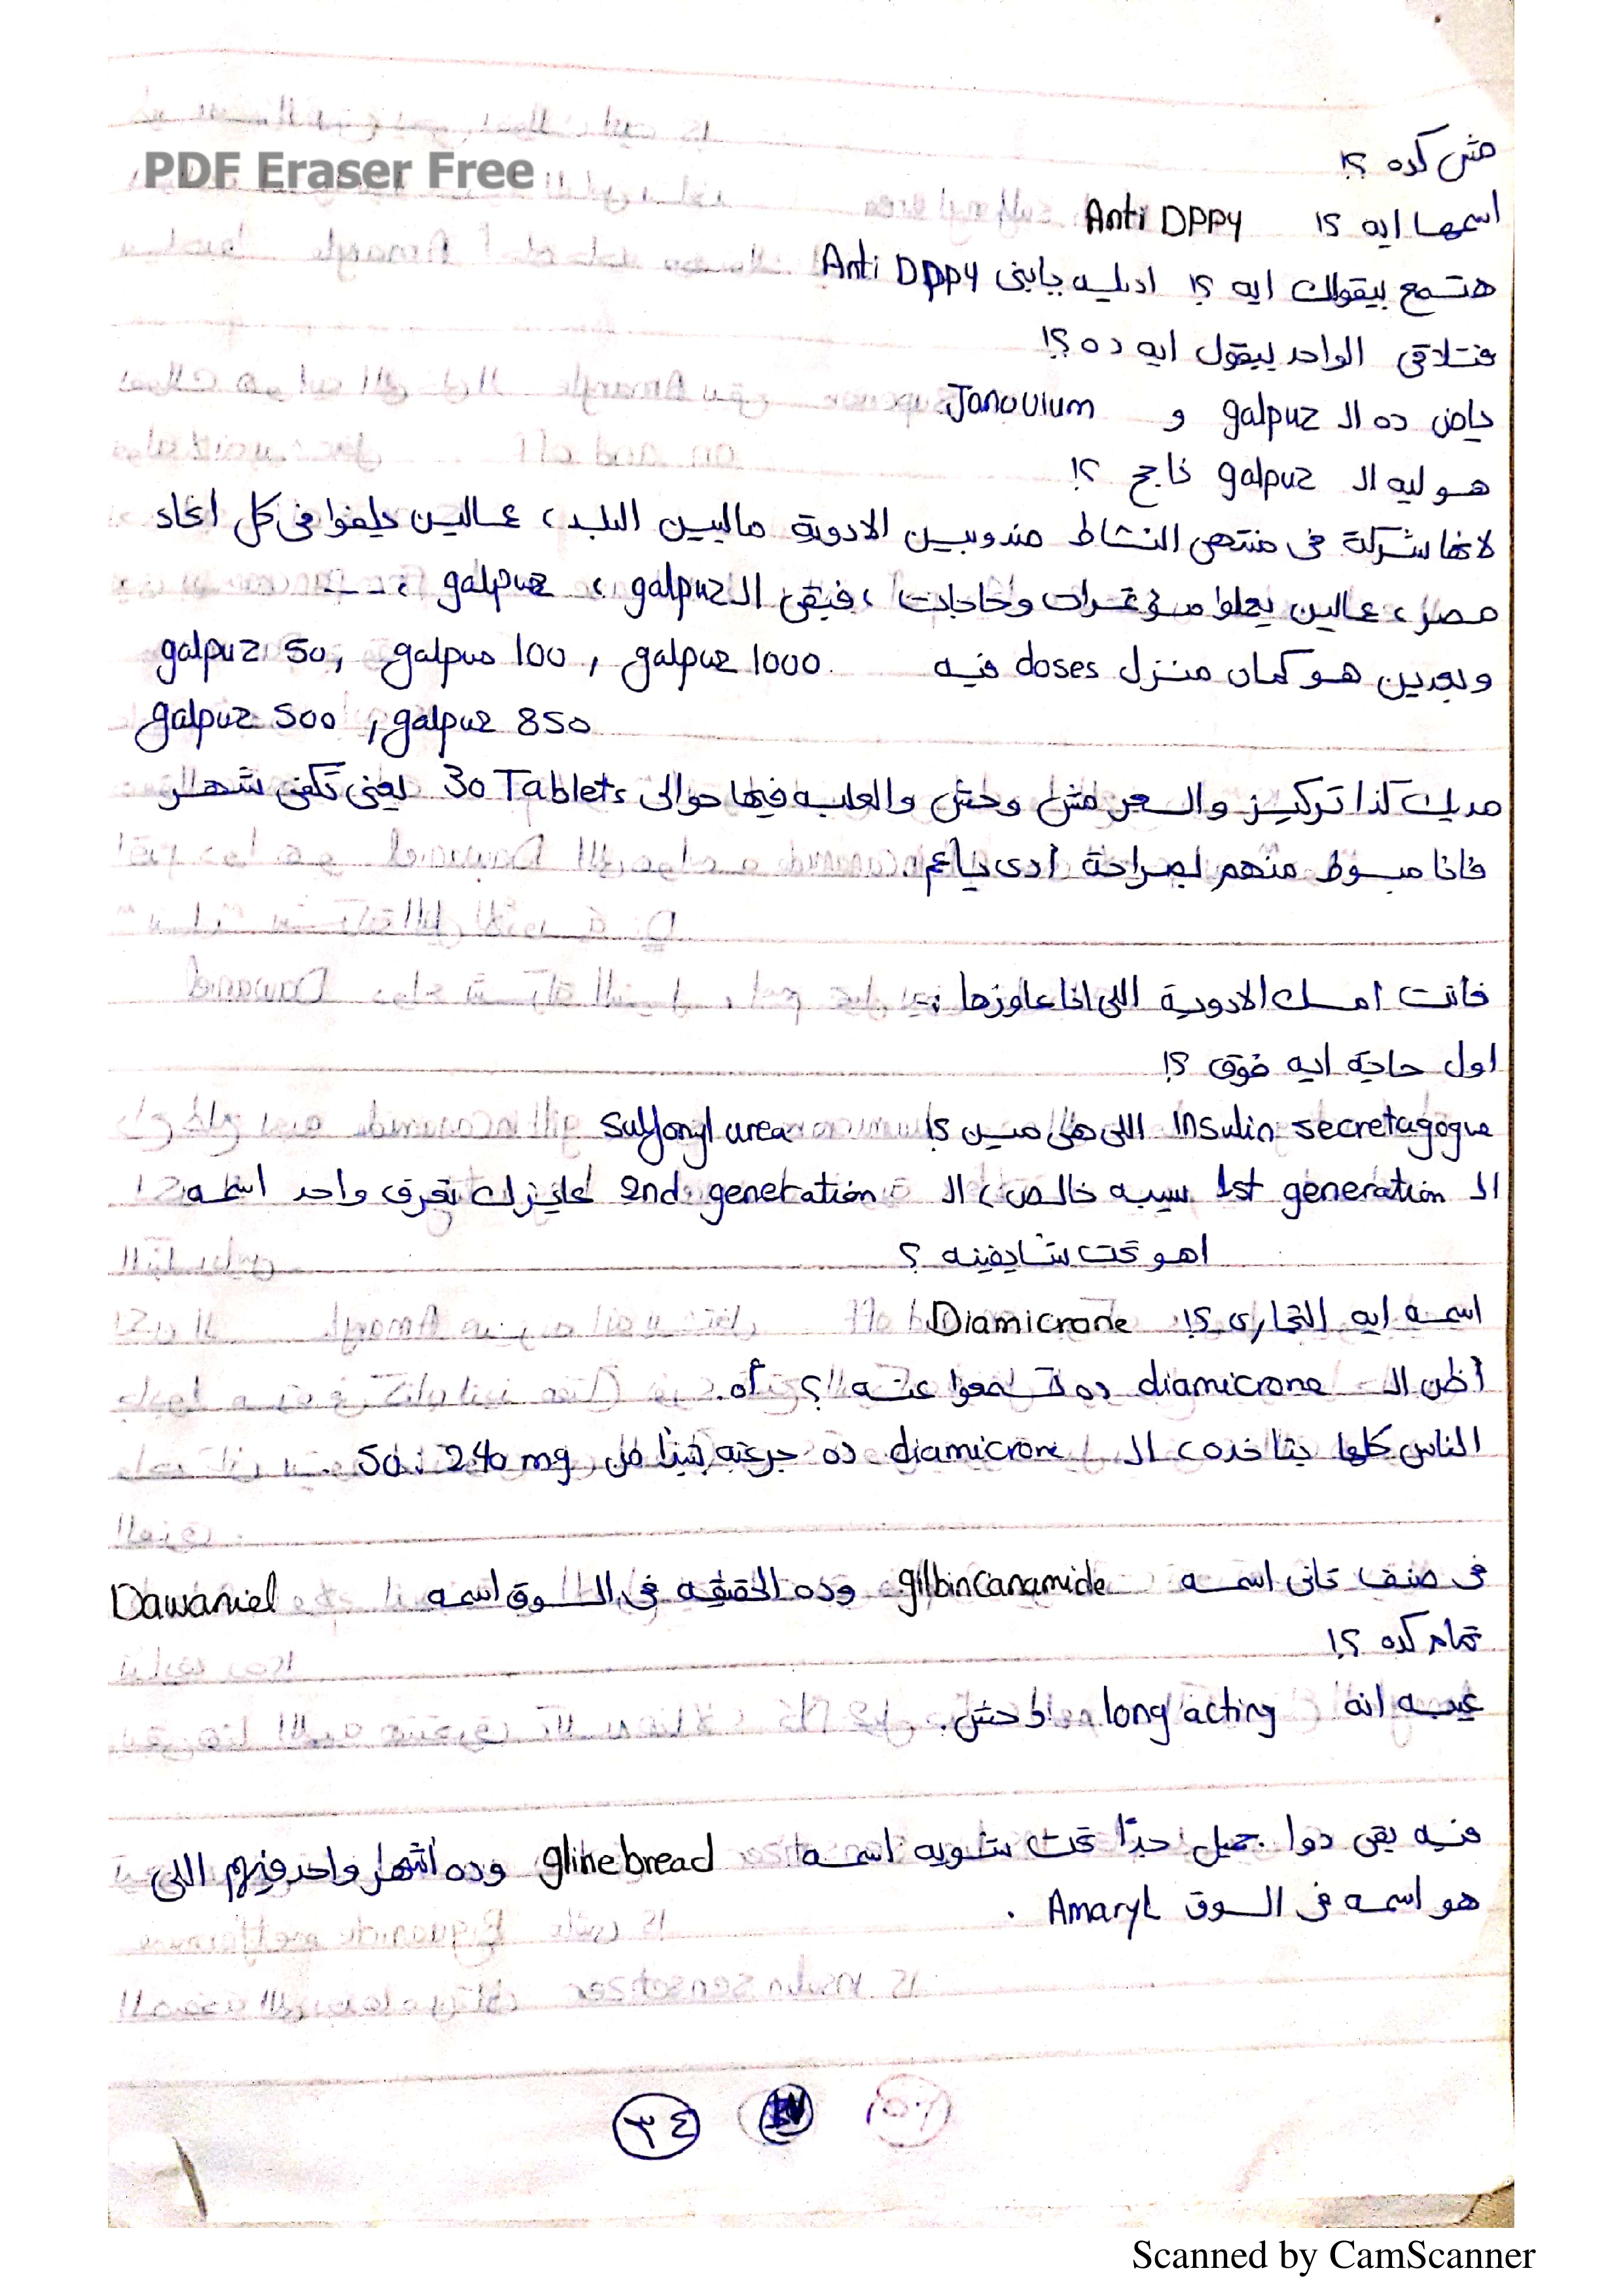 PDF Eraser Free
مش كده ؟!
اسمها ايه ؟! Anti DPPY
هتسمع بيقولك ايه ؟! اديله يابنى Anti DPPY
فتلاقى الواحد بيقول ايه ده ؟!
ياض ده الـ galpuz و Janouium
هو ليه الـ galpuz ناجح ؟!
لانها شركة فى منتهى النشاط مندوبين الادوية ماليين البلد، عمالين يلفوا فى كل انحاء
مصر، عمالين يعملوا مؤتمرات وحاجات، فبقى الـ galpuz ، galpuz ، ---
وبعدين هو كمان منزل doses فيه galpuz 50, galpus 100 , galpuz 1000
galpuz 500 , galpuz 850
مديك كذا تركيز والسعر مش وحش والعلبه فيها حوالى 30 Tablets يعنى تكفى شهر
فانا مبسوط منهم بصراحة أدى ياعم
فانت امسك الادوية اللى انا عاوزها :
اول حاجة ايه فوق ؟!
Insulin secretagogue اللى هى مين ؟! Sulfonyl urea
الـ 1st generation سيبه خالص، الـ 2nd generation عايزك تعرف واحد اسمه
اهو تحت شايفينه ؟
اسمه ايه التجارى ؟! Diamicrone
أظن الـ diamicrone ده تسمعوا عنه ؟ أه.
الناس كلها بتاخده، الـ diamicrone ده جرعته بتبدأ من 50 : 240 mg .
فى صنف تانى اسمه gilbincanamide وده الحقيقه فى السوق اسمه Dawaniel
تمام كده ؟!
عيبه انه long acting ماحش.
فيه بقى دوا جميل جدًا تحت شويه اسمه glinebread وده أشهر واحد فيهم اللى
هو اسمه فى السوق Amaryl .
٣٤
Scanned by CamScanner